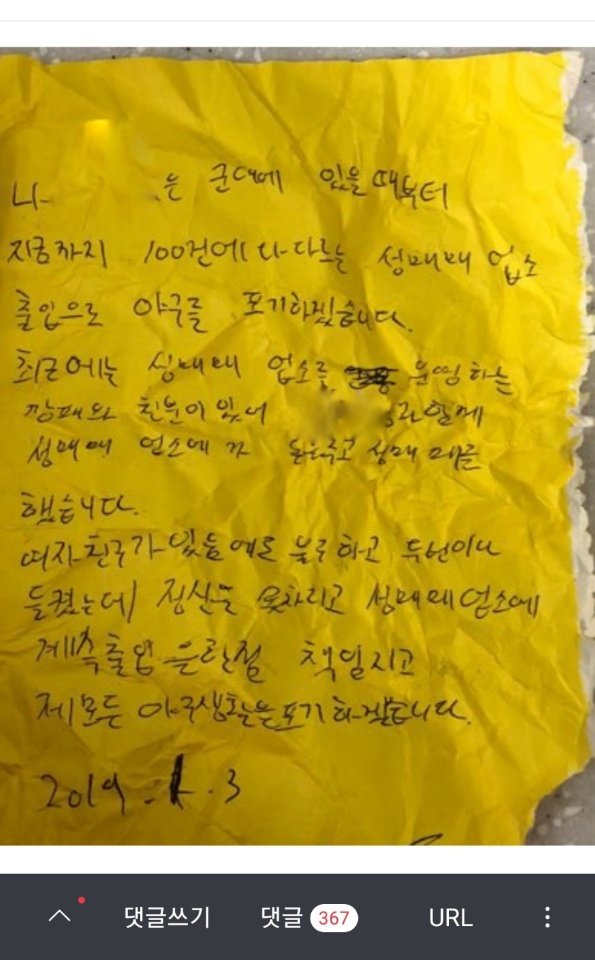 나 은 군대에 있을때부터
지금까지 100건에 다다르는 성매매 업소
출입으로 야구를 포기하겠습니다.
최근에는 성매매 업소를 운영하는
깡패와 친분이 있어 과 함께
성매매 업소에 가 돈을주고 성매매를
했습니다.
여자친구가 있음에도 불구하고 두번이나
들켰는데 정신을 못차리고 성매매업소에
계속출입 은란점 책임지고
제 모든 야구생활을 포기하겠습니다.
2019.1.3
댓글쓰기 댓글 367 URL